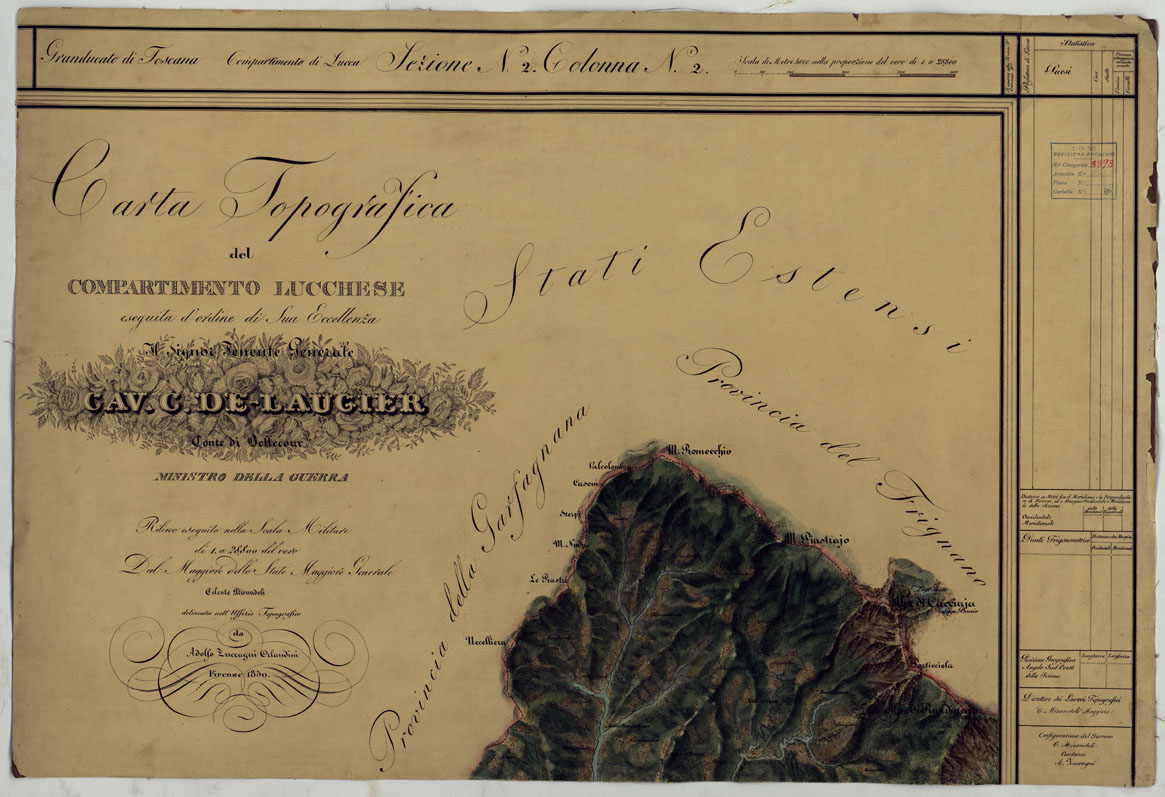 Granducato di Toscana Compartimento di Lucca Sezione N. 2. Colonna N. 2.
Scala di Metri 5000 nella proporzione del vero di 1. a 28800
Carta Topografica
del
COMPARTIMENTO LUCCHESE
eseguita d'ordine di Sua Eccellenza
Il Signor Tenente Generale
CAV. C. DE-LAUGIER
Conte di Bellecour
MINISTRO DELLA GUERRA
Rilievo eseguito nella Scala Militare
di 1. a 28800 del vero
Dal Maggiore dello Stato Maggiore Generale
Celeste Mirandoli
delineata nell'Uffizio Topografico
da
Adolfo Zuccagni Orlandini
Firenze 1850.
Stati Estensi
Provincia del Frignano
Provincia della Garfagnana
M. Romecchio
Valcolomba
Casoni
Sterpi
Le Piastre
M. Piastrajo
Uccelliera
Statistica
Paesi
Case
Stalle
REVISIONE ARCHIVIO
8898
Occidentale
Meridionale
Punti Trigonometrici
Occidentali Meridionali
Longhezza Larghezza
Posizione Geografica
Angolo Sud-Ovest
della Sezione
Direttore dei Lavori Topografici
C. Mirandoli Maggiore
Configurazione del Terreno
C. Mirandoli
Contorni
A. Zuccagni